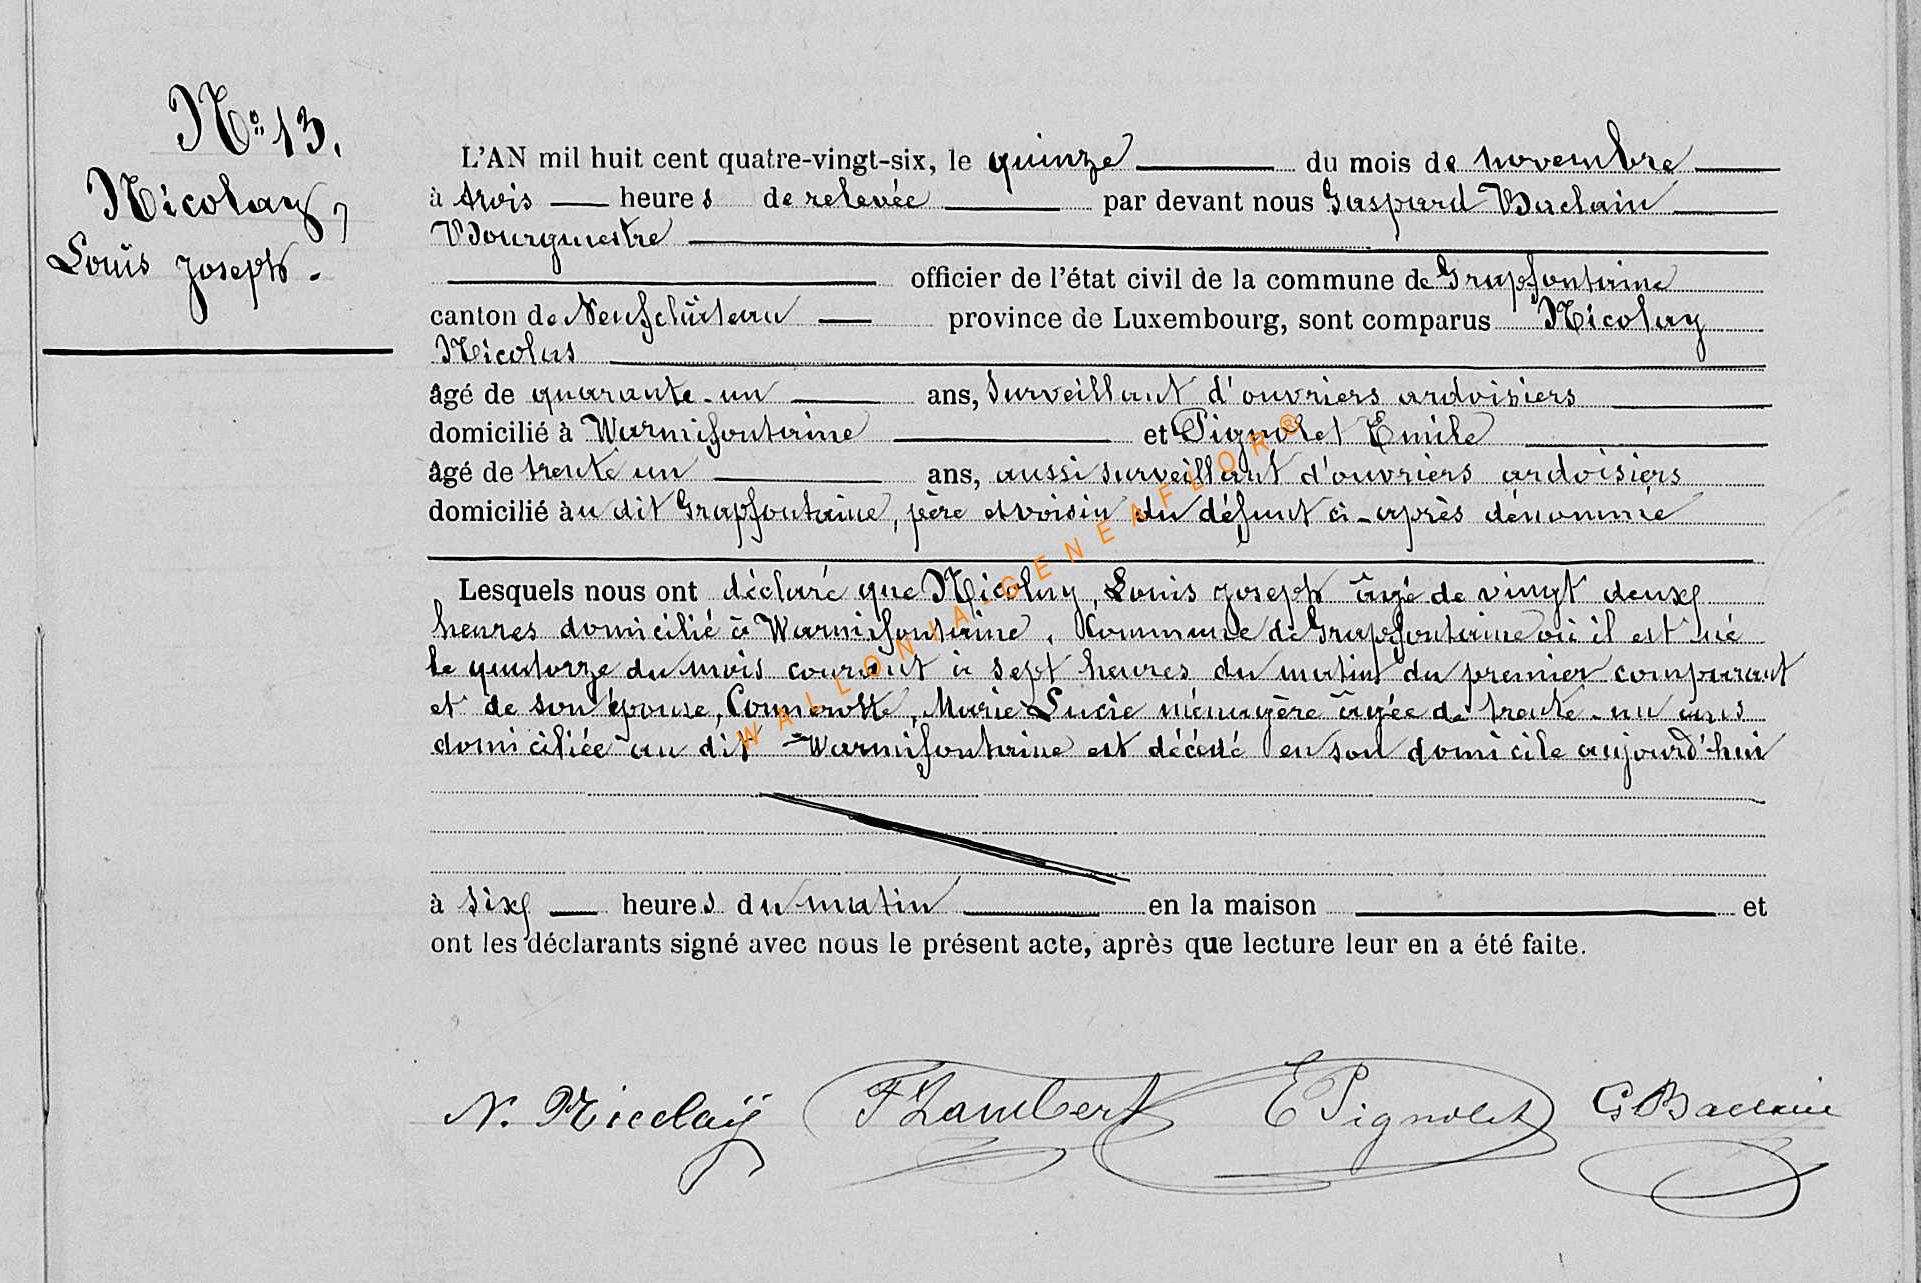 N° 13.
Nicolay,
Louis Joseph.
L'AN mil huit cent quatre-vingt-six, le quinze du mois de novembre
à trois heures de relevée par devant nous Gaspard Baclain
Bourgmestre
officier de l'état civil de la commune de Grapfontaine
canton de Neufchâteau province de Luxembourg, sont comparus Nicolay
Nicolas
âgé de quarante-un ans, surveillant d'ouvriers ardoisiers
domicilié à Warmifontaine et Pignolet Emile
âgé de trente un ans, aussi surveillant d'ouvriers ardoisiers
domicilié au dit Grapfontaine, père et voisin du défunt ci-après dénommé
Lesquels nous ont déclaré que Nicolay, Louis Joseph âgé de vingt deux
heures domicilié à Warmifontaine, Commune de Grapfontaine où il est né
le quatorze du mois courant à sept heures du matin du premier comparant
et de son épouse, Connerotte, Marie Lucie ménagère âgée de trente-un ans
domiciliée au dit Warmifontaine est décédé en son domicile aujourd'hui
à six heures du matin en la maison et
ont les déclarants signé avec nous le présent acte, après que lecture leur en a été faite.
N. Nicolaÿ F Lambert E Pignolet G Baclain
WALLONIA-GENEAFLOR®